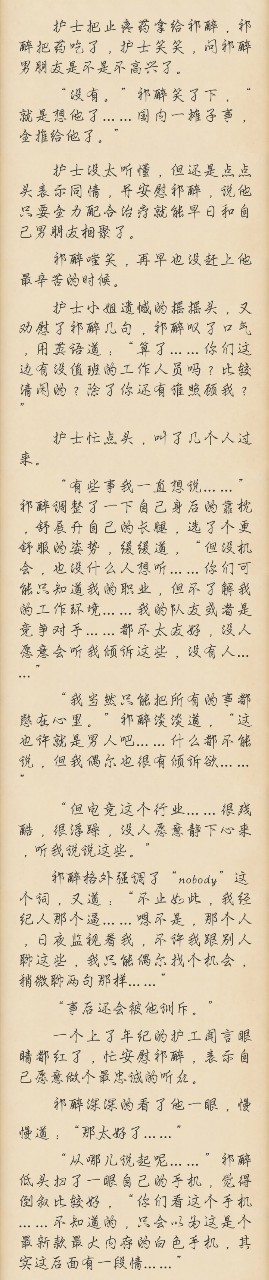 护士把止疼药拿给祁醉，祁
醉把药吃了，护士笑笑，问祁醉
男朋友是不是不高兴了。
“没有。”祁醉笑了下，“
就是想他了……国内一摊子事，
全推给他了。”
护士没太听懂，但还是点点
头表示同情，并安慰祁醉，说他
只要全力配合治疗就能早日和自
己男朋友相聚了。
祁醉嘡笑，再早也没赶上他
最辛苦的时候。
护士小姐遗憾的摇摇头，又
劝慰了祁醉几句，祁醉叹了口气
，用英语道：“算了……你们这
边有没值班的工作人员吗？比较
清闲的？除了你还有谁照顾我？
”
护士忙点头，叫了几个人过
来。
“有些事我一直想说……”
祁醉调整了一下自己身后的靠枕
，舒展开自己的长腿，选了个更
舒服的姿势，缓缓道，“但没机
会，也没什么人想听……你们可
能只知道我的职业，但不了解我
的工作环境……我的队友或者是
竞争对手……都不太友好，没人
愿意会听我倾诉这些，没有人…
…”
“我当然只能把所有的事都
憋在心里。”祁醉淡淡道，“这
也许就是男人吧……什么都不能
说，但我偶尔也很有倾诉欲……
”
“但电竞这个行业……很残
酷，很浮躁，没人愿意静下心来
，听我说说这些。”
祁醉格外强调了“nobody”这
个词，又道：“不止如此，我经
纪人那个逼……嗯不是，那个人
，日夜监视着我，不许我跟别人
聊这些，我只能偶尔找个机会，
稍微聊两句那样……”
“事后还会被他训斥。”
一个上了年纪的护工闻言眼
睛都红了，忙安慰祁醉，表示自
己愿意做个最忠诚的听众。
祁醉深深的看了他一眼，慢
慢道：“那太好了……”
“从哪儿说起呢……”祁醉
低头扫了一眼自己的手机，觉得
倒叙比较好，“你们看这个手机
……不知道的，只会以为这是个
最新款最大内存的白色手机，其
实这后面有一段情……”